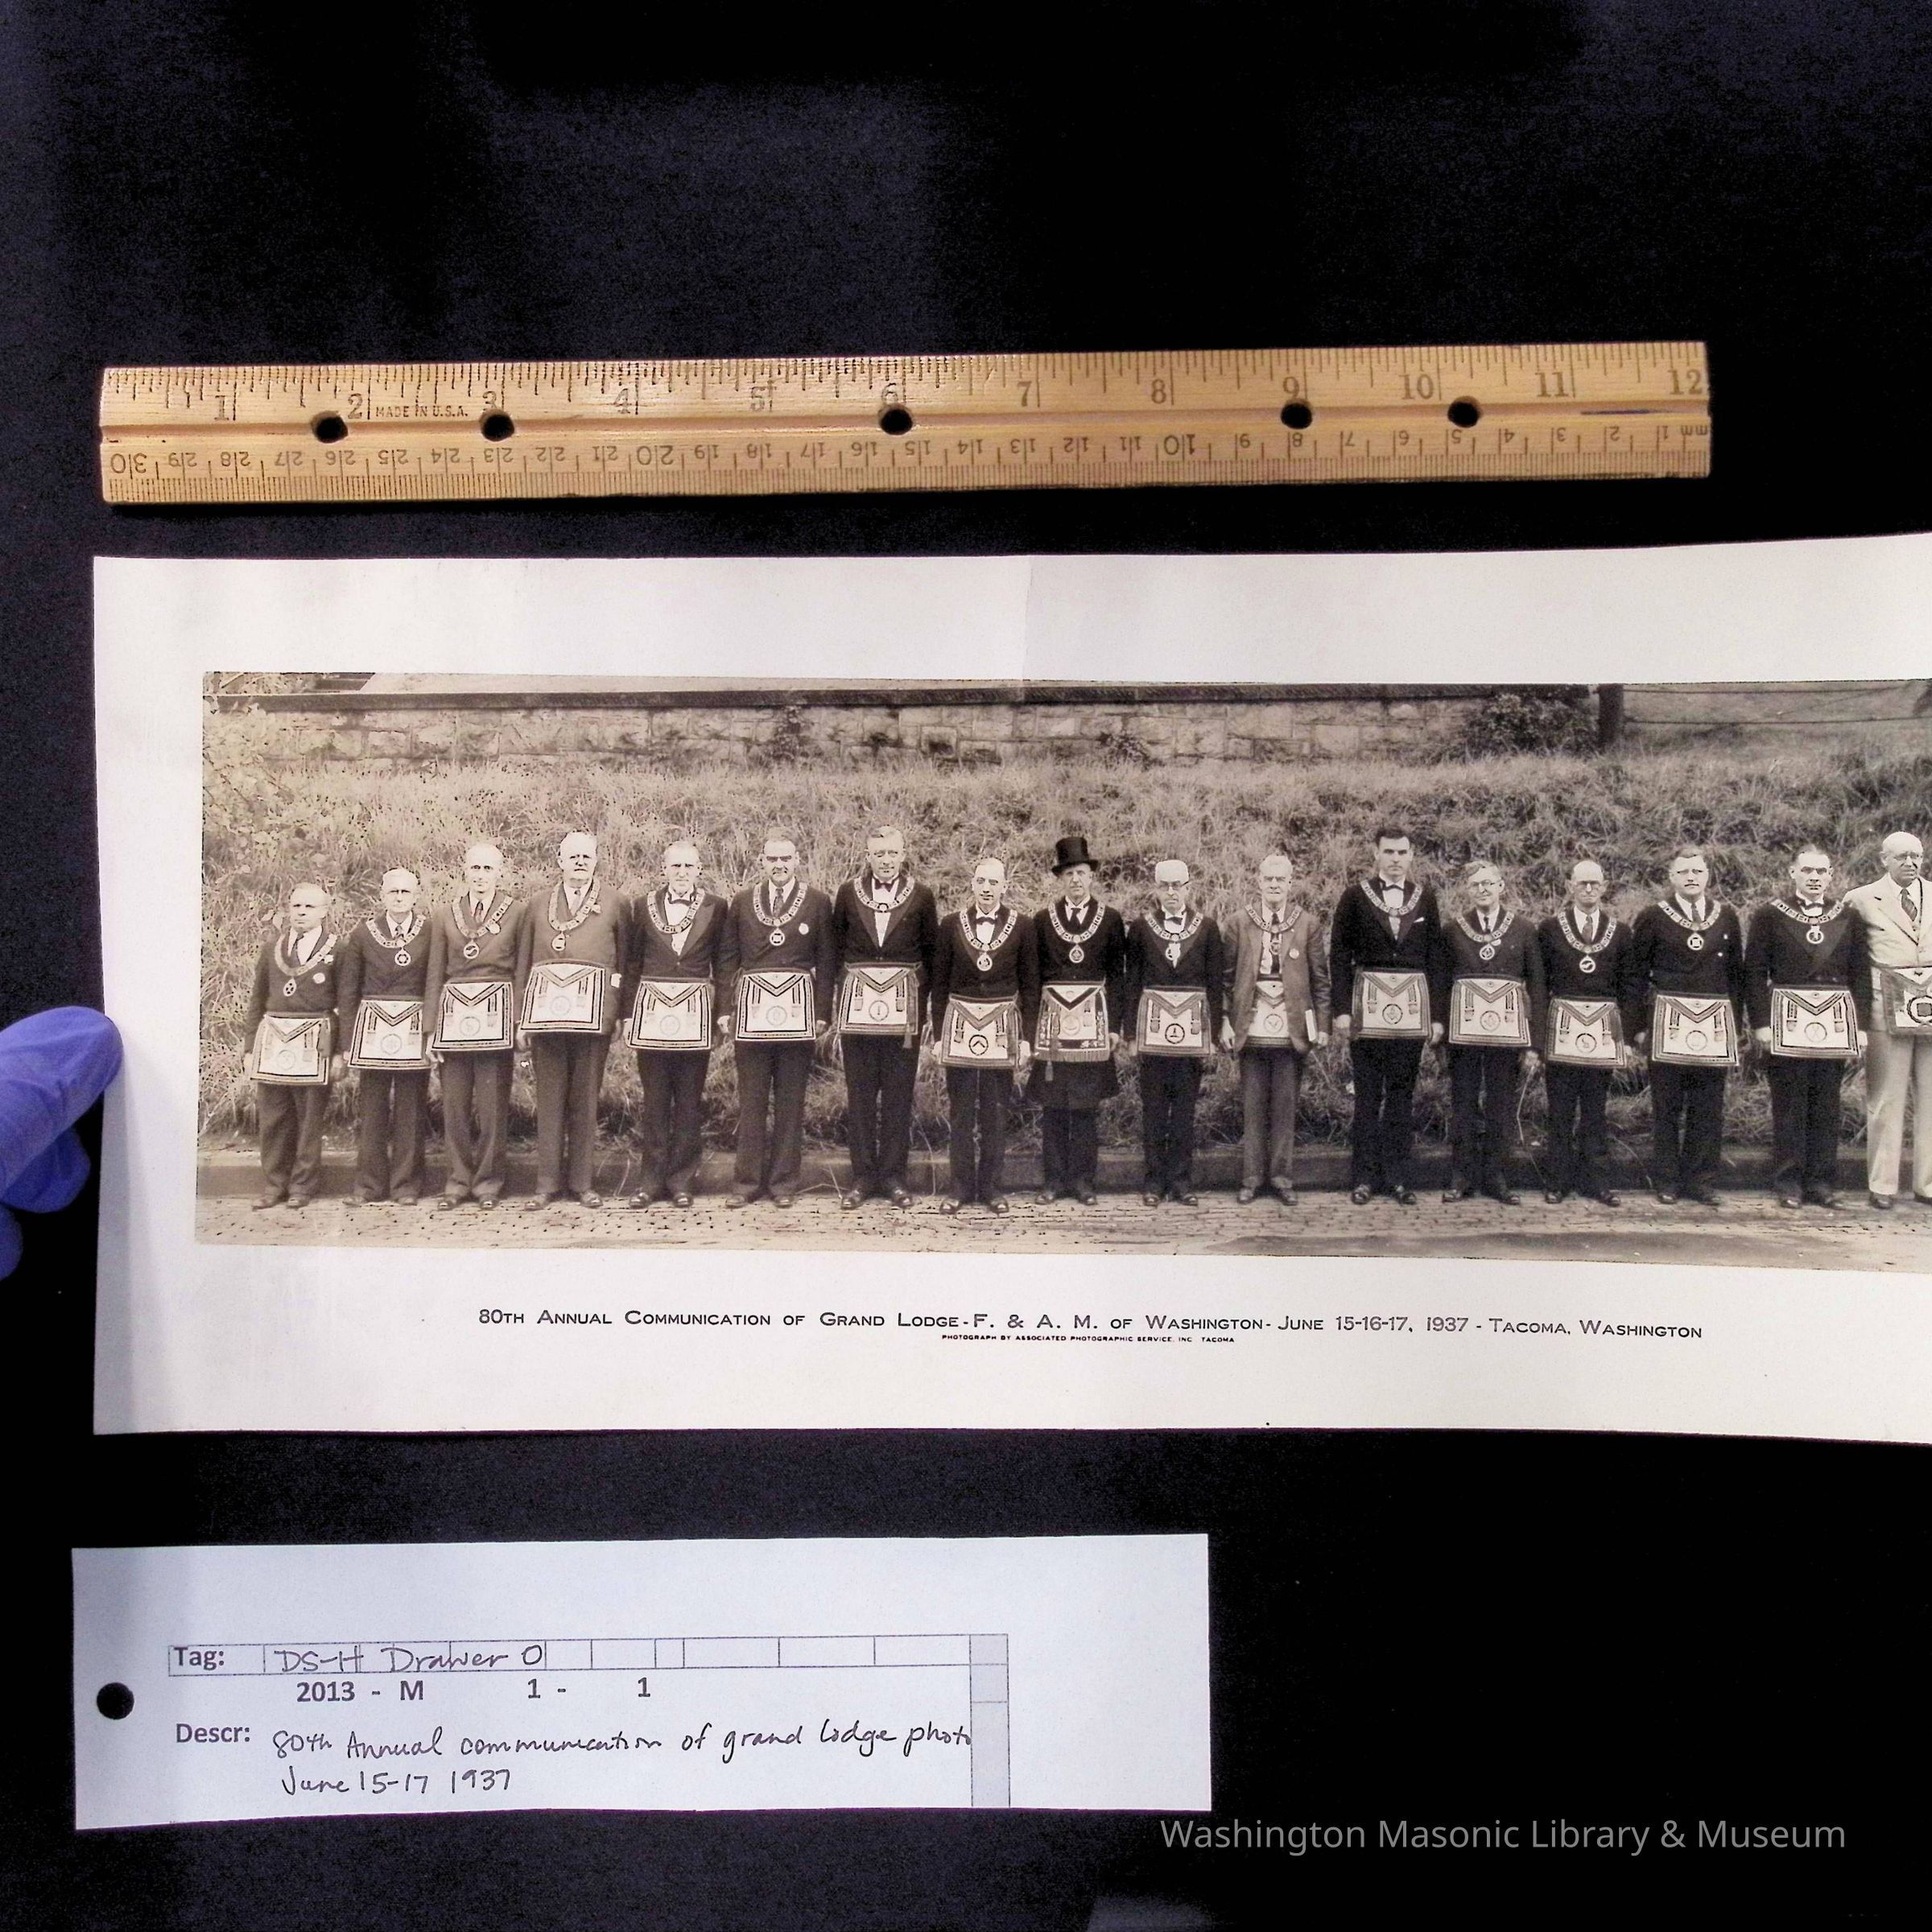 1 2 3 4 5 6 7 8 9 10 11 12
MADE IN U.S.A.
30 29 28 27 26 25 24 23 22 21 20 19 18 17 16 15 14 13 12 11 10 9 8 7 6 5 4 3 2 1 mm
80TH ANNUAL COMMUNICATION OF GRAND LODGE - F. & A. M. OF WASHINGTON - JUNE 15-16-17, 1937 - TACOMA, WASHINGTON
PHOTOGRAPH BY ASSOCIATED PHOTOGRAPHIC SERVICE, INC TACOMA
Tag: DS-H Drawer O
2013 - M 1 - 1
Descr: 80th Annual communication of grand lodge photo
June 15-17 1937
Washington Masonic Library & Museum